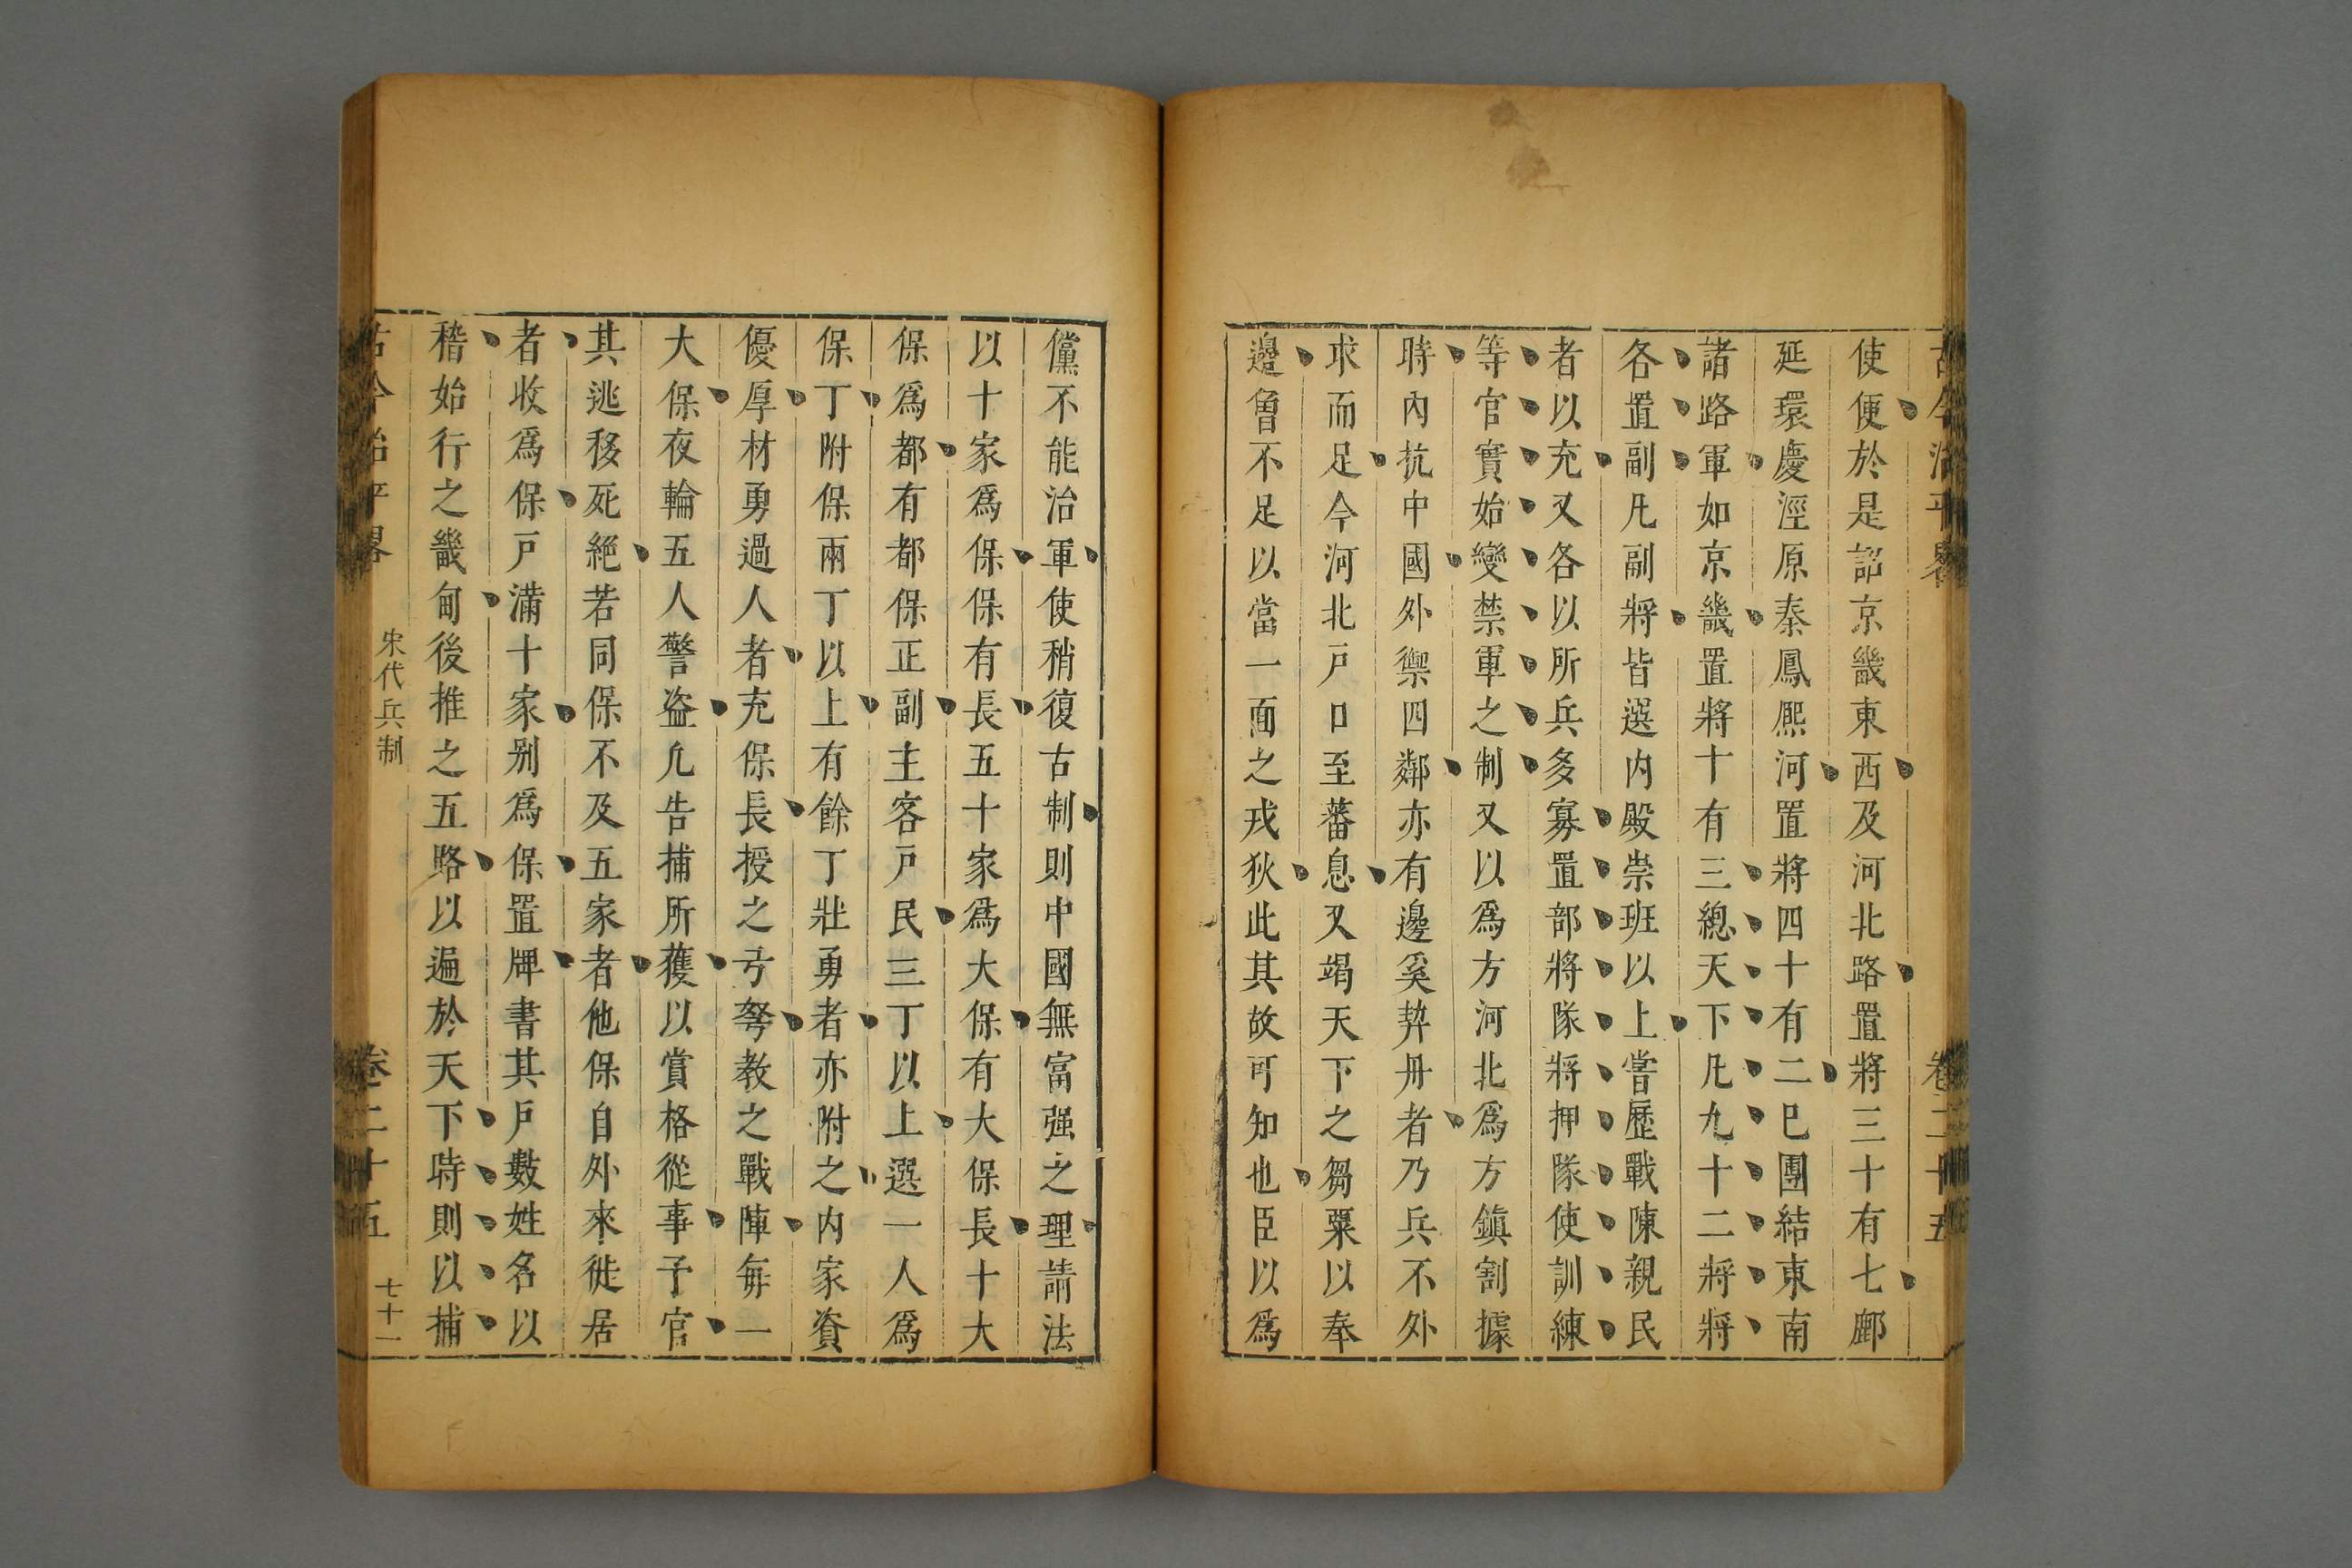 古今治平畧 卷二十五
使便於是詔京畿東西及河北路置將三十有七鄜
延環慶涇原秦鳳熈河置將四十有二已團結東南
諸路軍如京畿置將十有三總天下凡九十二將將
各置副凡副將皆選内殿崇班以上嘗歷戰陳親民
者以充又各以所兵多寡置部將隊將押隊使訓練
等官實始變禁軍之制又以爲方河北爲方鎮割據
時內抗中國外禦四鄰亦有邊奚契丹者乃兵不外
求而足今河北戸口至蕃息又竭天下之芻粟以奉
邊曾不足以當一面之戎狄此其故可知也臣以爲
儻不能治軍使稍復古制則中國無富强之理請法
以十家爲保保有長五十家爲大保有大保長十大
保爲都有都保正副主客戸民三丁以上選一人爲
保丁附保兩丁以上有餘丁壯勇者亦附之内家資
優厚材勇過人者充保長授之弓弩教之戰陣毎一
大保夜輪五人警盗凢告捕所獲以賞格從事予官
其逃移死絕若同保不及五家者他保自外來徙居
者收爲保戸滿十家别爲保置牌書其戸數姓名以
稽始行之畿甸後推之五路以遍於天下時則以捕
古今治平畧 宋代兵制 卷二十五 七十一